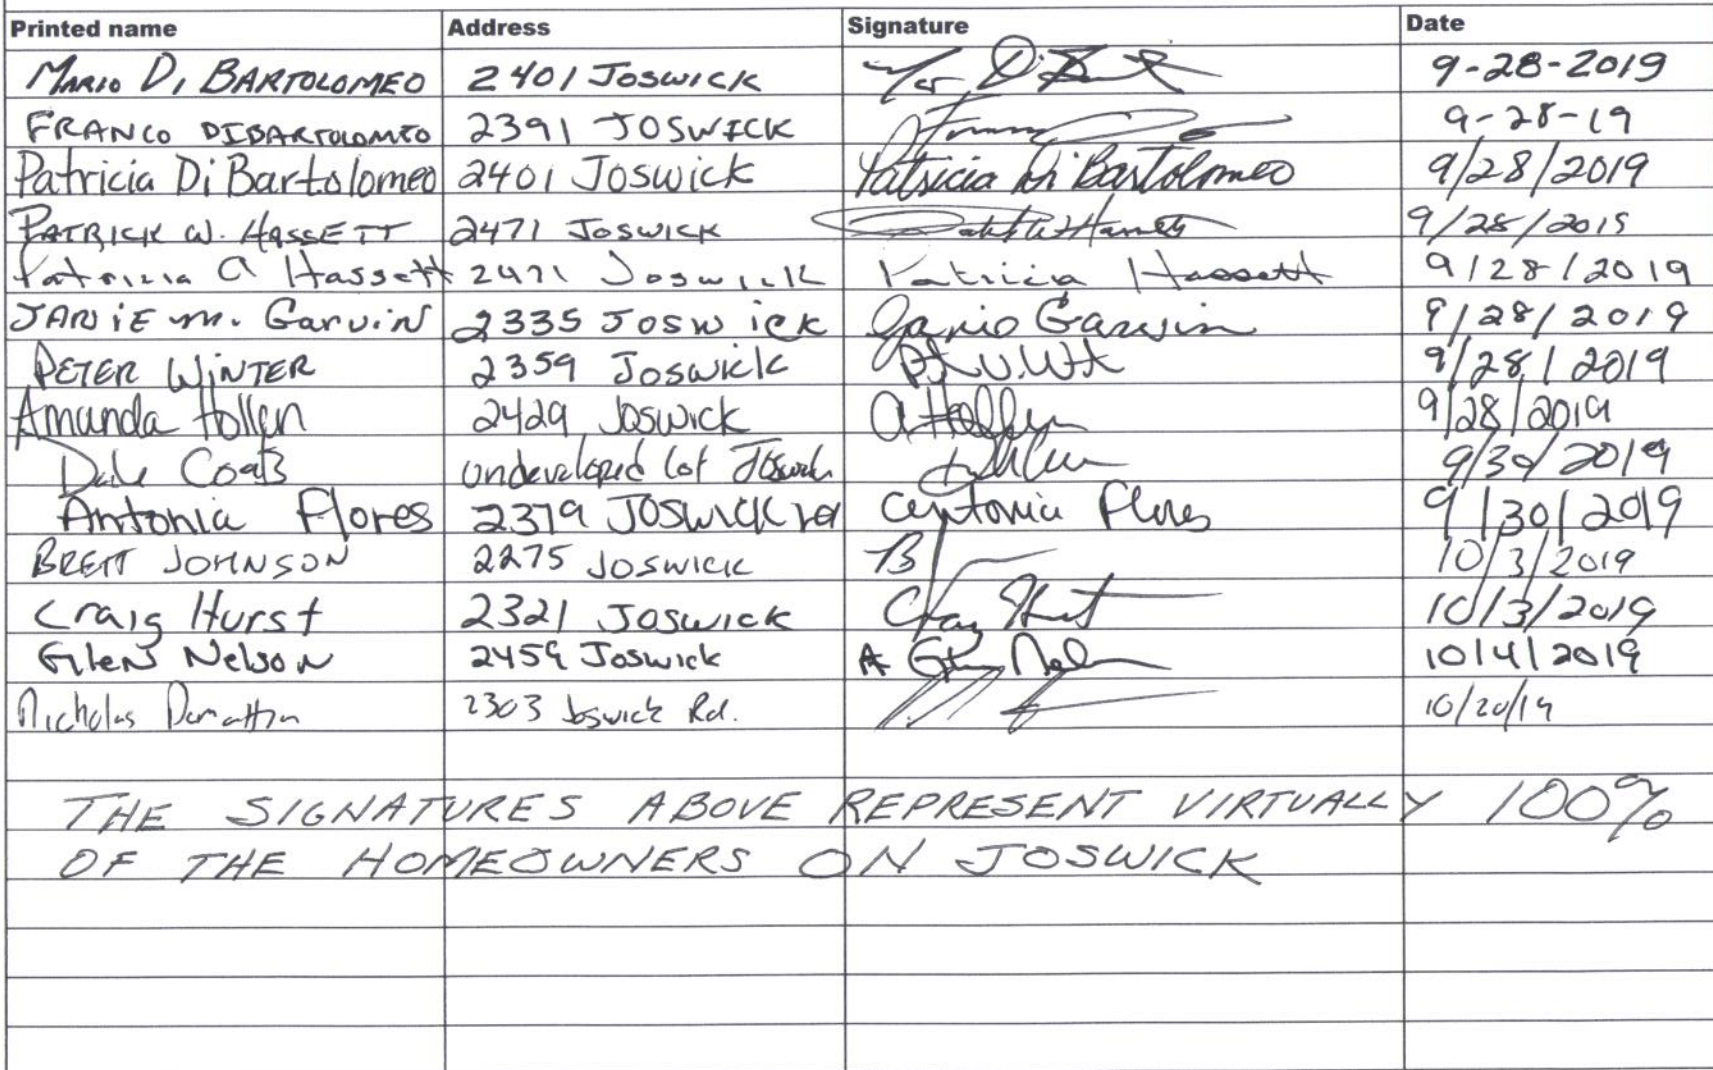 Printed name Address Signature Date
MARIO DI BARTOLOMEO 2401 JOSWICK 9-28-2019
FRANCO DIBARTOLOMEO 2391 JOSWICK 9-28-19
Patricia Di Bartolomeo 2401 Joswick Patricia Di Bartolomeo 9/28/2019
PATRICK W. HASSETT 2471 JOSWICK 9/28/2019
Patricia A Hassett 2471 Joswick Patricia Hassett 9/28/2019
JANIE m. GarviN 2335 JOSWick Janie Garvin 9/28/2019
PETER WINTER 2359 Joswick 9/28/2019
Amanda Hollen 2429 Joswick A Hollen 9/28/2019
Dale undeveloped lot Joswick 9/30/2019
Antonia Flores 2379 JOSWICK rd Antonia Flores 9/30/2019
BRETT JOHNSON 2275 JOSWICK B 10/3/2019
Craig Hurst 2321 JOSWICK Craig Hurst 10/3/2019
GleN NelsoN 2459 Joswick 10/4/2019
Nicholas 2303 Joswick Rd. 10/20/19
THE SIGNATURES ABOVE REPRESENT VIRTUALLY 100%
OF THE HOMEOWNERS ON JOSWICK